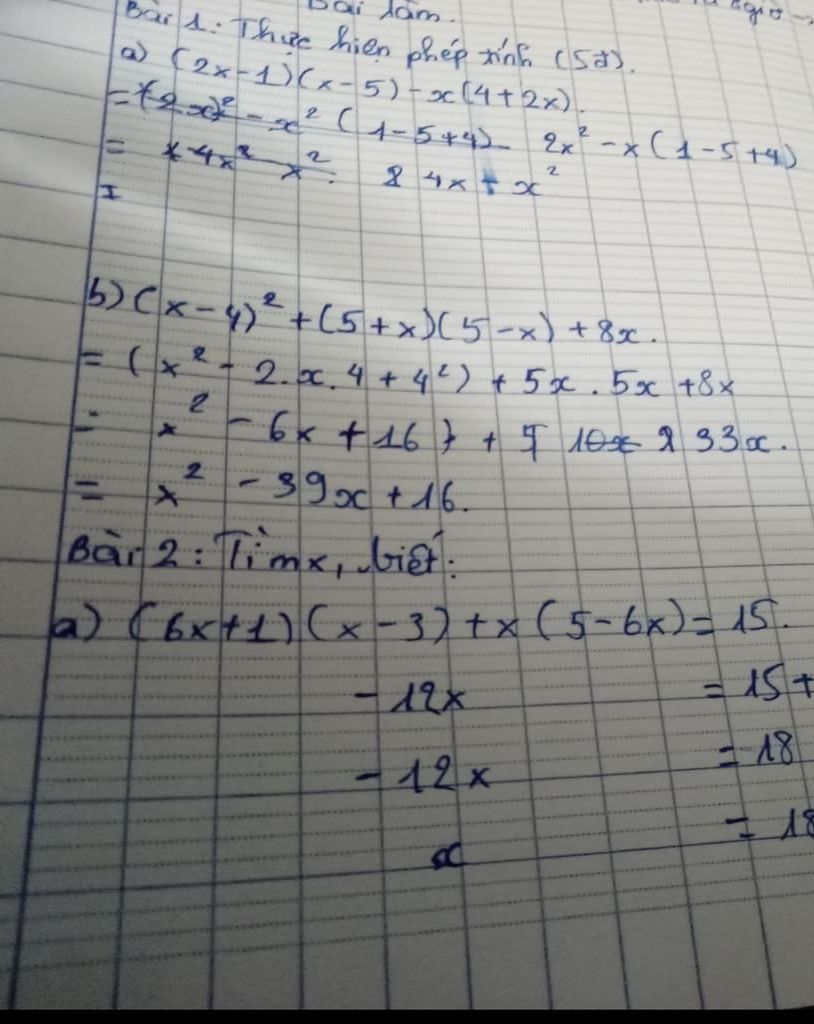 Bài làm.
Bài 1: Thực hiện phép tính (5đ).
a) (2x-1)(x-5) - x(4+2x).
= (2x)² - x² (1-5+4) 2x² - x(1-5+4)
= x 4x² x² 4x + x²
=
b) (x-4)² + (5+x)(5-x) + 8x.
= (x² - 2.x.4 + 4²) + 5x . 5x + 8x
= x² - 6x + 16) + 10x 33x.
= x² - 39x + 16.
Bài 2: Tìm x, biết:
a) (6x+1)(x-3) + x(5-6x) = 15.
-12x = 15+
-12x = 18
x = 18